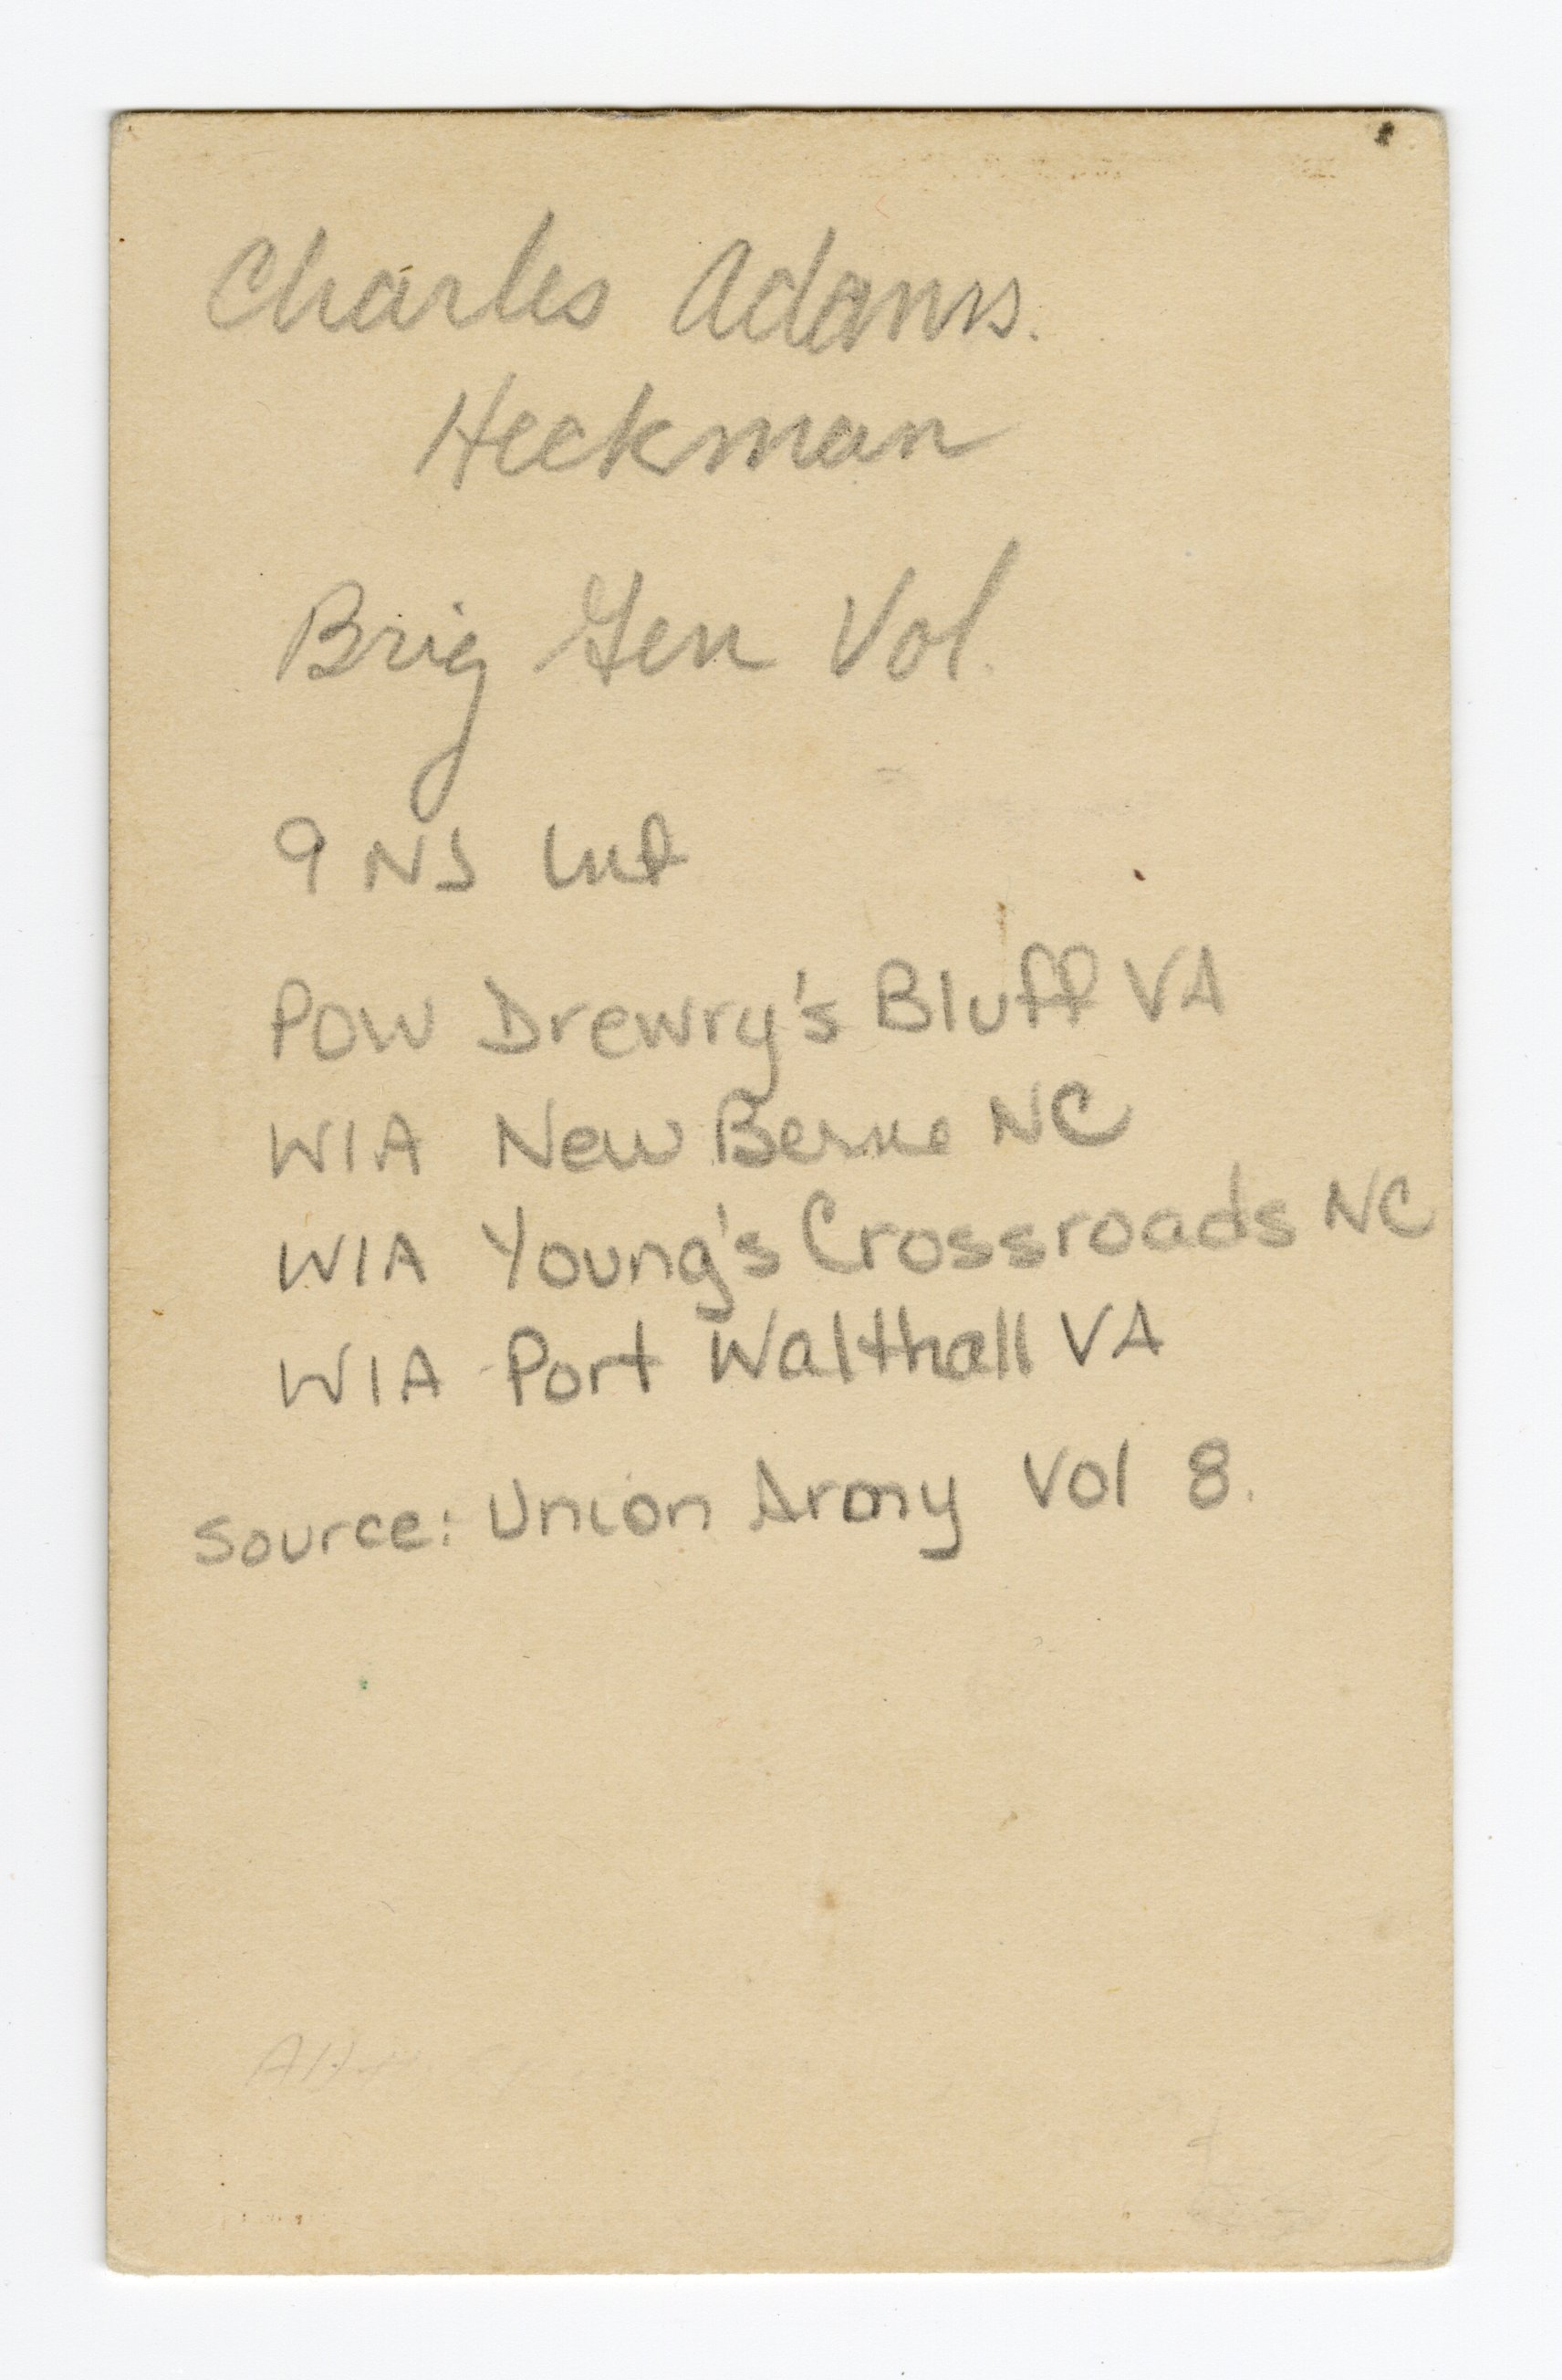 Charles Adams.
Heckman
Brig Gen Vol.
9 NJ Inf
POW Drewry's Bluff VA
WIA New Berne NC
WIA Young's Crossroads NC
WIA Port Walthall VA
Source: Union Army Vol 8.